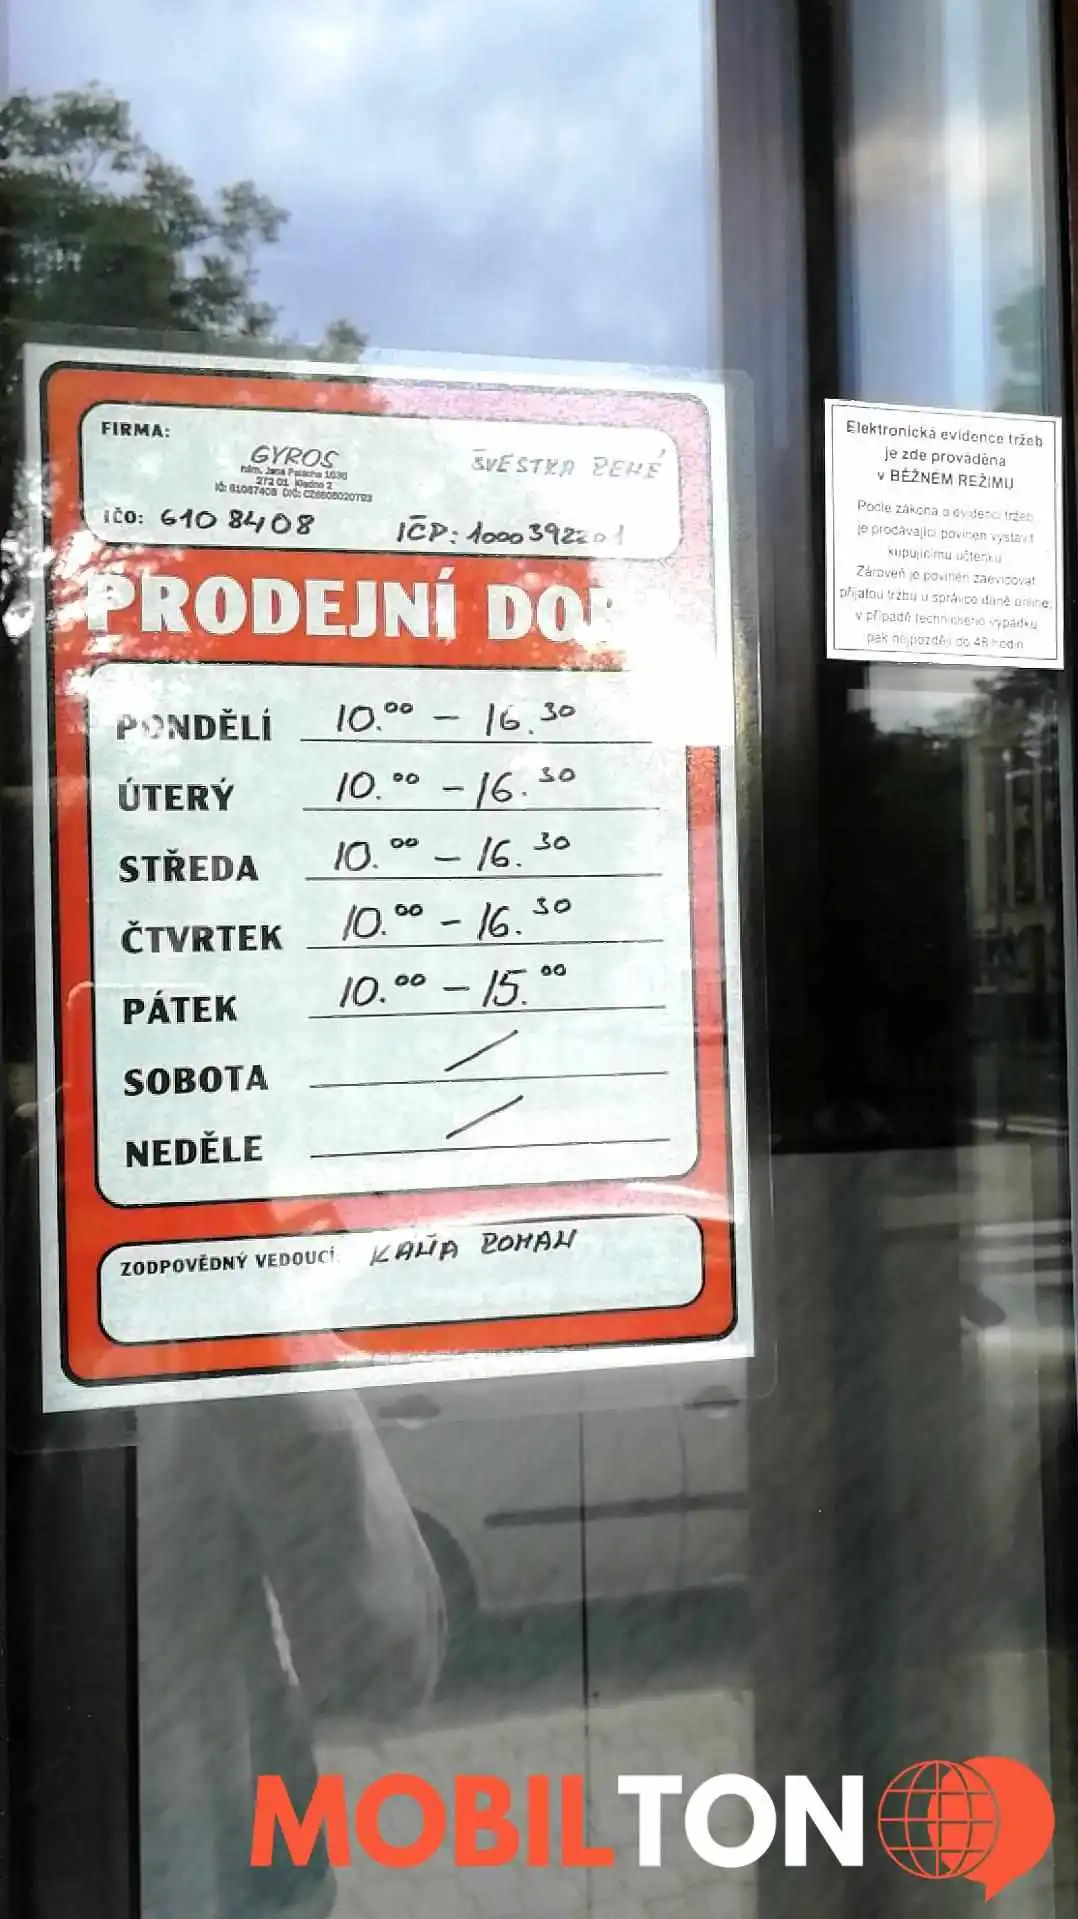 FIRMA:
GYROS
nám. Jana Palacha 1630
272 01 Kladno 2
ŠVESTKA RENÉ
IČO: 6108408
IČP: 1000392201
PRODEJNÍ DOB
PONDĚLÍ 10.00 - 16.30
ÚTERÝ 10.00 - 16.30
STŘEDA 10.00 - 16.30
ČTVRTEK 10.00 - 16.30
PÁTEK 10.00 - 15.00
SOBOTA /
NEDĚLE /
ZODPOVĚDNÝ VEDOUCÍ: KAŇA ROMAN
Elektronická evidence tržeb
je zde prováděna
v BĚŽNÉM REŽIMU
Podle zákona o evidenci tržeb
je prodávající povinen vystavit
kupujícímu účtenku.
Zároveň je povinen zaevidovat
přijatou tržbu u správce daně online;
v případě technického výpadku
pak nejpozději do 48 hodin.
MOBILTON